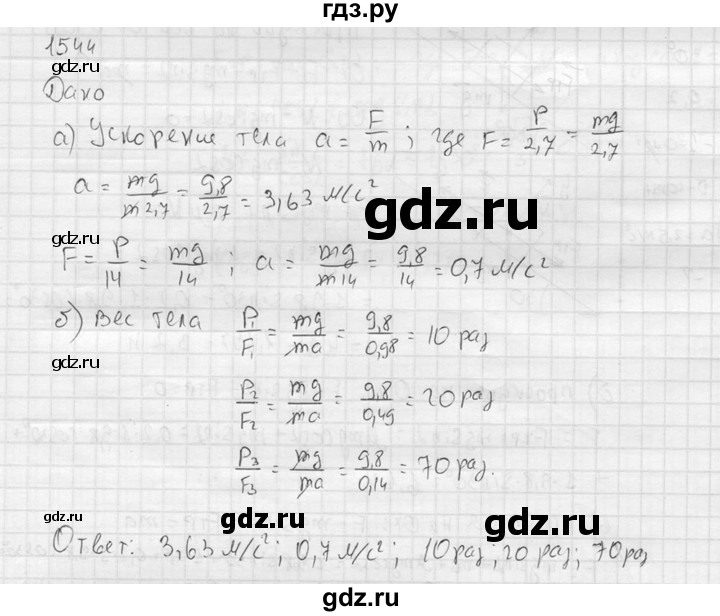 гдз.ру
1544
gdz.ru
Дано
а) Ускорение тела a = F/m ; где F = P/2,7 = mg/2,7
gdz.ru
a = mg/m2,7 = 9,8/2,7 = 3,63 м/с²
gdz.ru
F = P/14 = mg/14 ; a = mg/m14 = 9,8/14 = 0,7 м/с²
б) Вес тела P₁/F₁ = mg/ma = 9,8/0,98 = 10 раз
gdz.ru
P₂/F₂ = mg/ma = 9,8/0,49 = 20 раз
P₃/F₃ = mg/ma = 9,8/0,14 = 70 раз.
gdz.ru gdz.ru gdz.ru
Ответ: 3,63 м/с²; 0,7 м/с²; 10 раз; 20 раз; 70 раз
gdz.ru